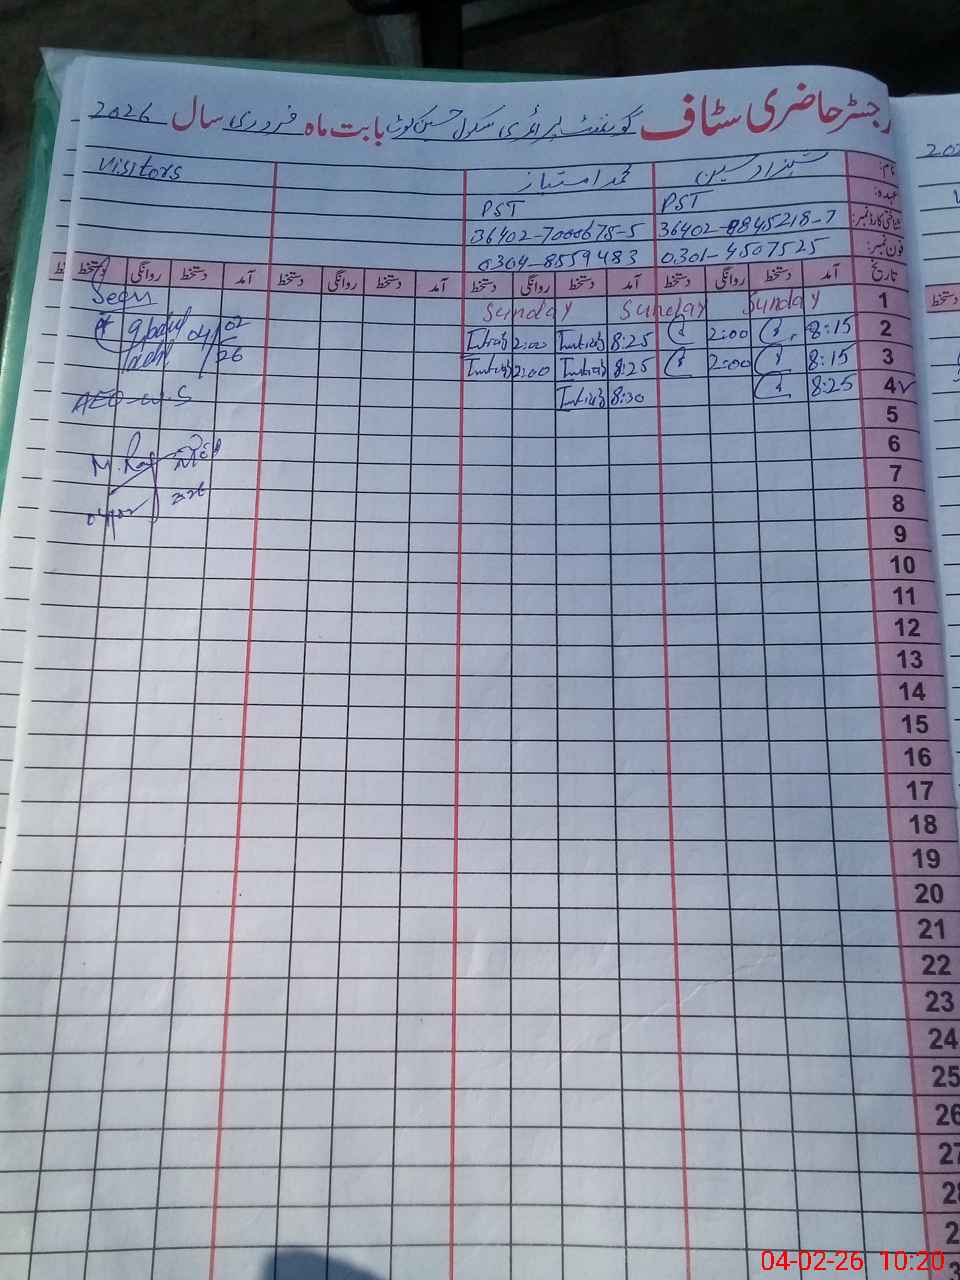 رجسٹر حاضری سٹاف گورنمنٹ پرائمری سکول حسین کوٹ بابت ماہ فروری سال 2026
نام: شہزاد حسین محمد امتیاز Visitors
عہدہ: PST PST
شناختی کارڈ نمبر: 36402-9845218-7 36402-7000678-5
فون نمبر: 0301-4507525 0304-8559483
تاریخ آمد دستخط روانگی دستخط آمد دستخط روانگی دستخط آمد دستخط روانگی دستخط آمد دستخط روانگی دستخط
1 Sunday Sunday Sunday Seen
2 8:15 2:00 8:25 Imtiaz 2:00 Imtiaz 04/02
3 8:15 2:00 8:25 Imtiaz 2:00 Imtiaz 26
4 8:25 8:30 Imtiaz
5
6
7
8
9
10
11
12
13
14
15
16
17
18
19
20
21
22
23
24
25
26
27
04-02-26 10:20